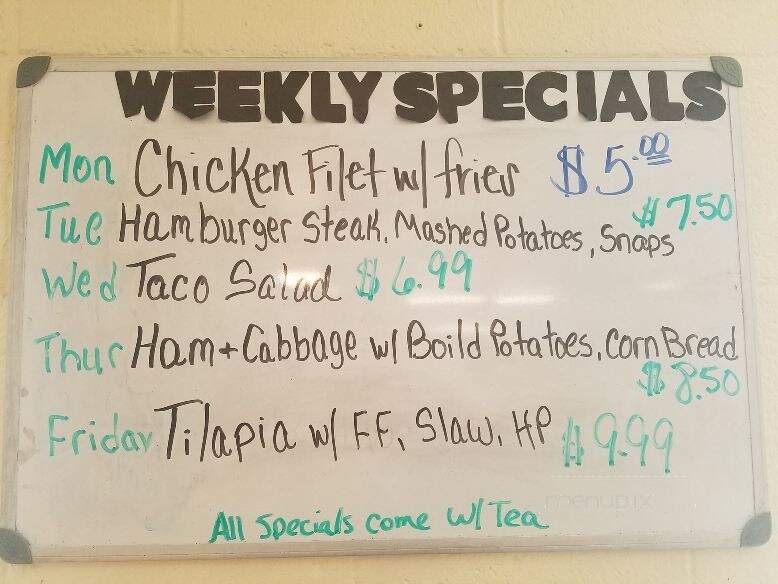 WEEKLY SPECIALS
Mon Chicken Filet w/ fries $5.00
Tue Hamburger Steak, Mashed Potatoes, Snaps $7.50
Wed Taco Salad $6.99
Thur Ham + Cabbage w/ Boild Potatoes, Corn Bread
$8.50
Friday Tilapia w/ FF, Slaw, HP $9.99
menupix
All Specials come w/ Tea